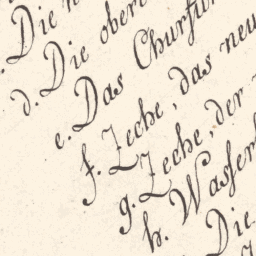 Die
d. Die obere
e. Das Churfür
f. Zeche, das neu
g. Zeche, der
h. Wasser
Die